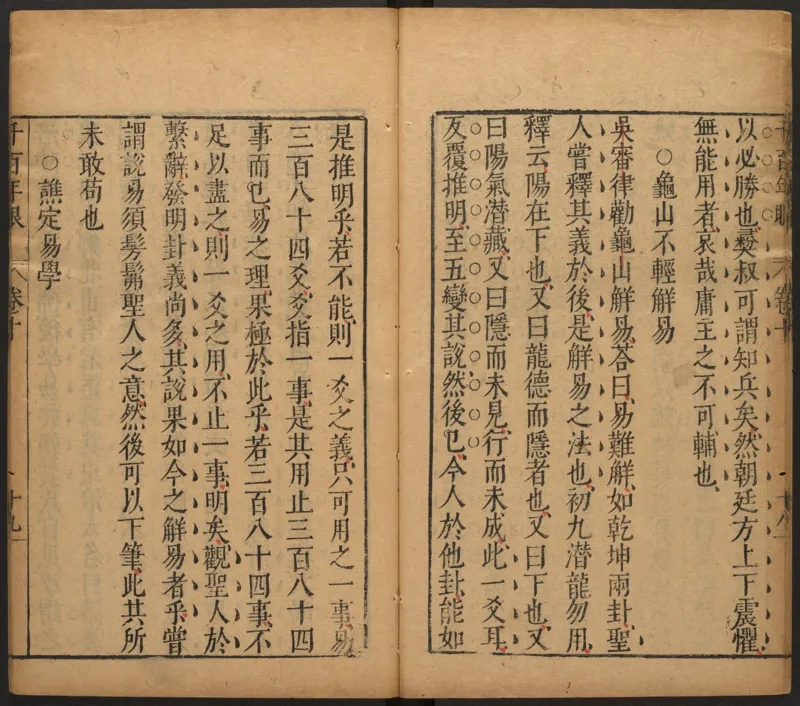 以必勝也爽叔可謂知兵矣然朝廷方上下震懼
無能用者哀哉庸主之不可輔也
○龜山不輕解易
吳審律勸龜山解易荅曰易難解如乾坤兩卦聖
人嘗釋其義於後是解易之法也初九潛龍勿用
釋云陽在下也又曰龍德而隱者也又曰下也又
曰陽氣潛藏又曰隱而未見行而未成此一爻耳
反覆推明至五變其說然後已今人於他卦能如
是推明乎若不能則一爻之義只可用之一事易
三百八十四爻爻指一事是其用止三百八十四
事而已易之理果極於此乎若三百八十四事不
足以盡之則一爻之用不止一事明矣觀聖人於
繫辭發明卦義尚多其說果如今之解易者乎嘗
謂說易須髣髴聖人之意然後可以下筆此其所
未敢苟也
○譙定易學
千百年眼 卷十 十九